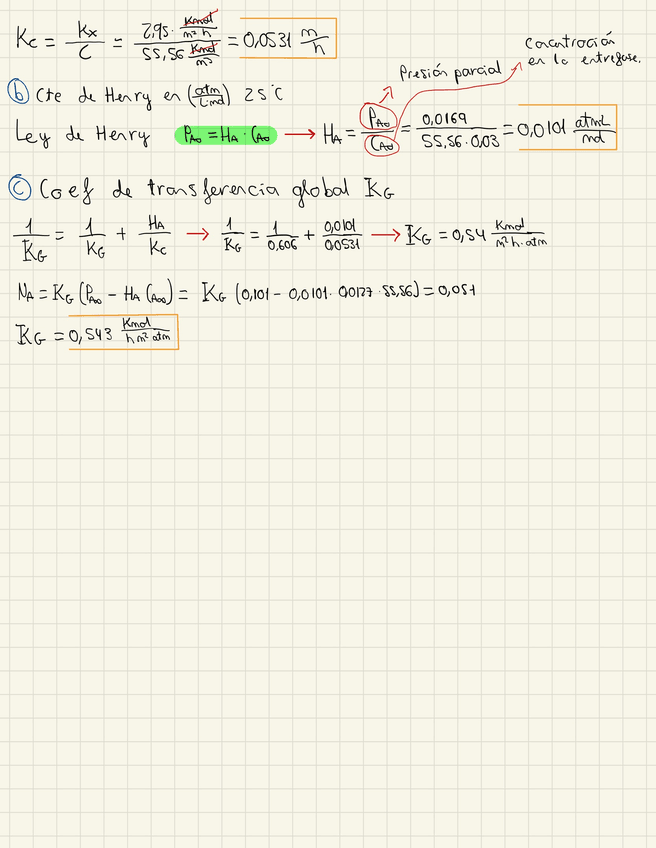 Kc = Kx/C = 2,95 · Kmol/m² h / 55,56 Kmol/m³ = 0,0531 m/h
Concentración en la entrefase.
Presión parcial
b Cte de Henry en (atm/L·md) 25°C
Ley de Henry PA∞ = HA · CA∞ → HA = PA∞/CA∞ = 0,0169/55,56·0,03 = 0,0101 atmL/md
c Coef de transferencia global KG
1/KG = 1/KG + HA/Kc → 1/KG = 1/0,606 + 0,0101/0,0531 → KG = 0,54 Kmol/m² h·atm
NA = KG (PA∞ - HA CA∞) = KG (0,101 - 0,0101 · 0,0127 · 55,56) = 0,051
KG = 0,543 Kmol/h m² atm